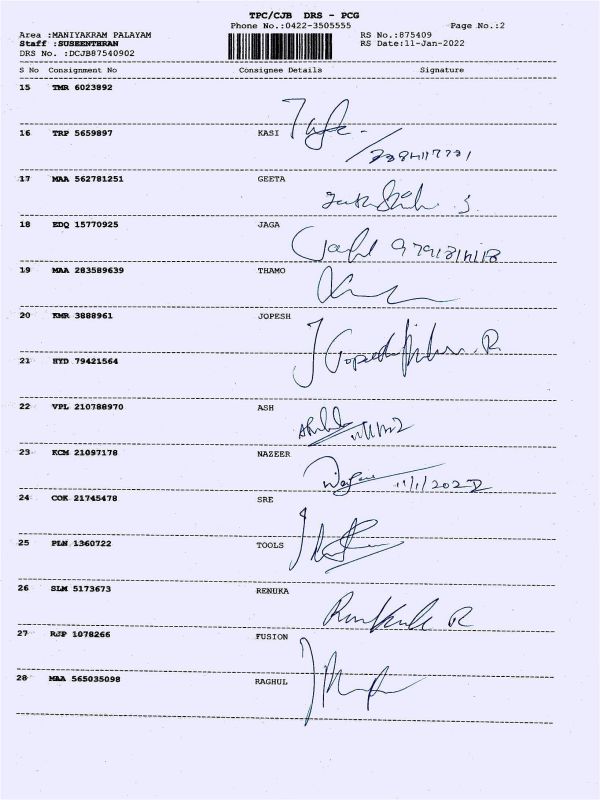 TPC/CJB DRS - PCG
Phone No.:0422-3505555 Page No.:2
Area :MANIYAKRAM PALAYAM RS No.:875409
Staff :SUSEENTHRAN RS Date:11-Jan-2022
DRS No. :DCJB87540902
S No Consignment No Consignee Details Signature
15 TMR 6023892
16 TRP 5659897 KASI
17 MAA 562781251 GEETA
18 EDQ 15770925 JAGA
19 MAA 283589639 THAMO
20 KMR 3888961 JOPESH
21 HYD 79421564
22 VPL 210788970 ASH
23 KCM 21097178 NAZEER
11/1/2022
24 COK 21745478 SRE
25 PLN 1360722 TOOLS
26 SLM 5173673 RENUKA
27 RJP 1078266 FUSION
28 MAA 565035098 RAGHUL